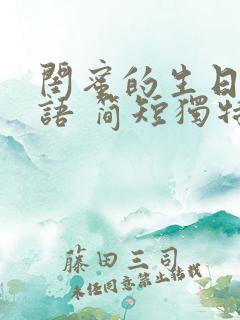 閨蜜的生日
語 简短獨特
藤田三司
未任同意禁止轉載